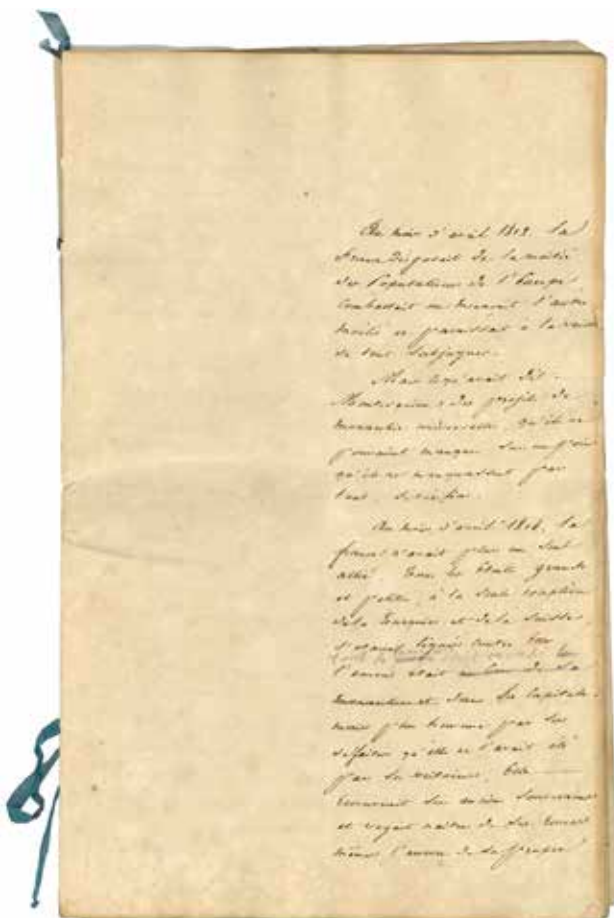 Au mois d'avril 1812. la
france disposait de la moitié
des Populations de l'Europe,
Combattait ou menacait l'autre
moitié et paraissait à la veille
de tout subjuguer.
Mais ce qu'avait dit
Montesquieu des projets de
monarchie universelle, qu'ils ne
pouvaient manquer sur un point
qu'ils ne manquassent par
tout,
Au mois d'avril 1814, la
france n'avait plus un seul
allié. Tous les Etats grands
et petits, à la seule exception
de la Turquie et de la Suisse
s'étaient ligués contre
l'ennemi était
dans sa Capitale.
mais plus par ses
défaites qu'elle ne l'avait été
par ses victoires, Elle
son ancien Souverain
et voyait naître de ses
mêmes l'aurore de sa